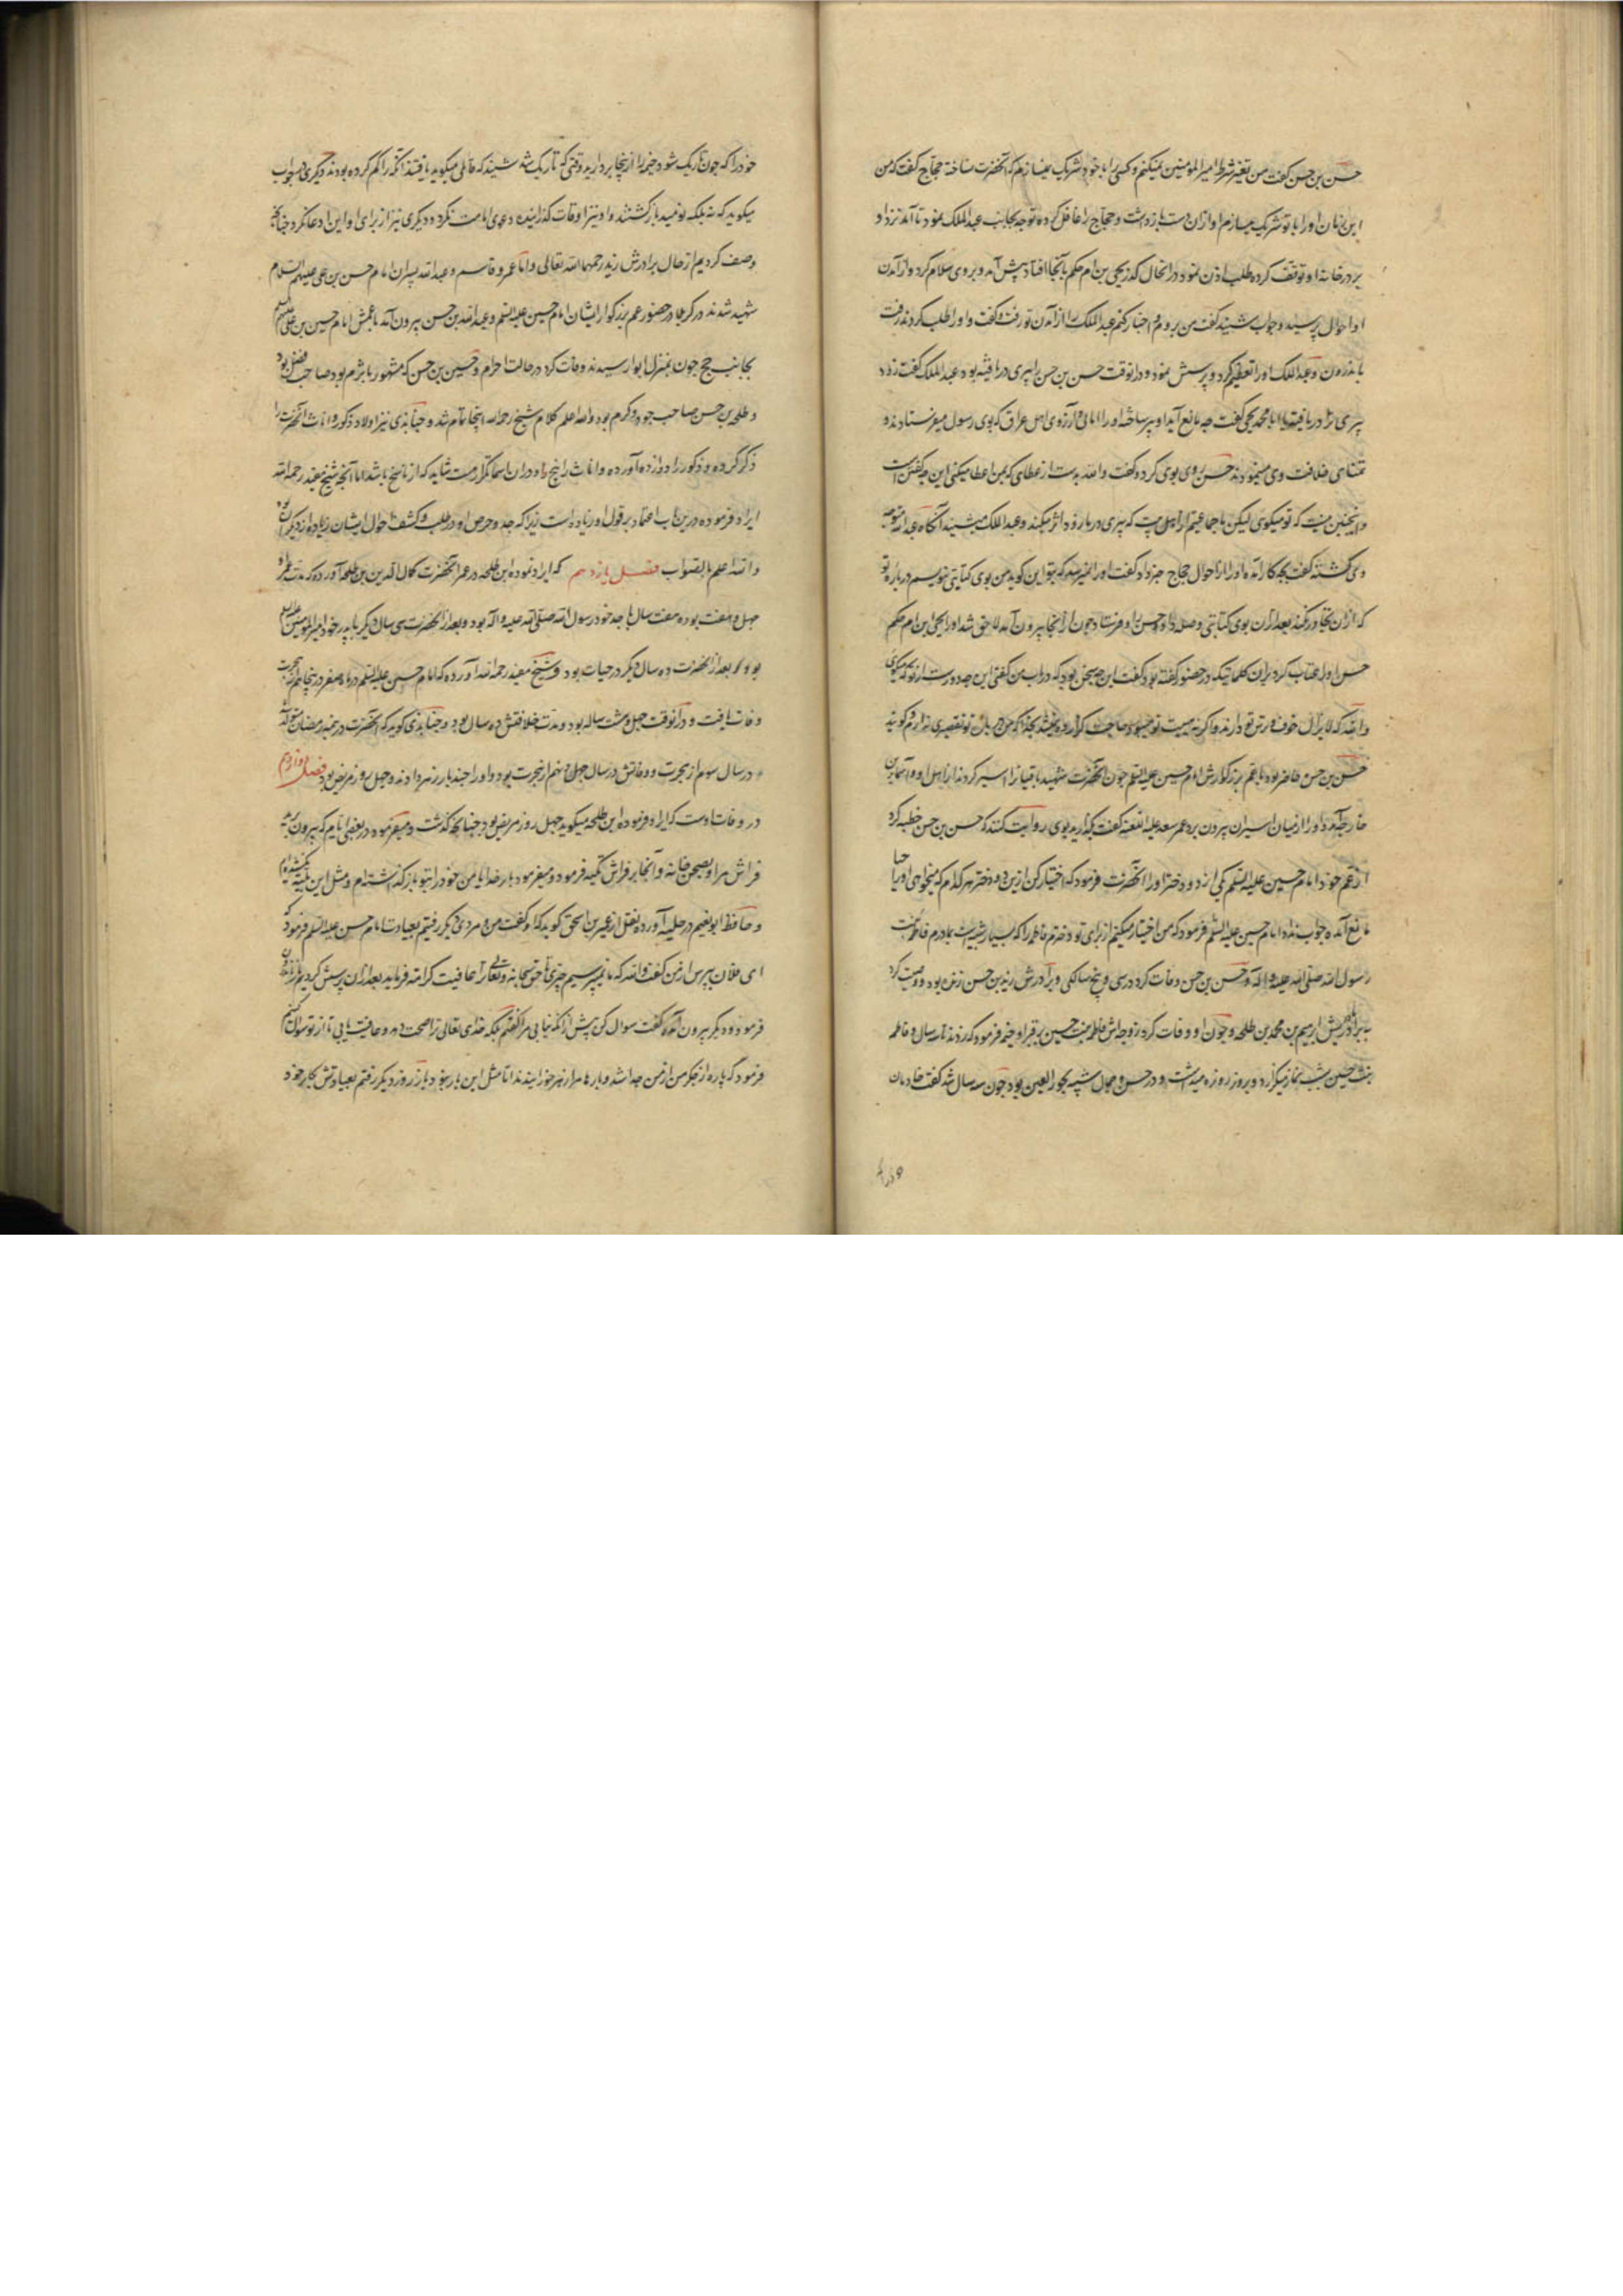 حسن بن حسن گفت من تغیر شرط امیر المومنین نمیکنم و کسی را با خود شریک نمیسازم که آنحضرت نساخته حجاج گفت که من
این زمان او را با تو شریک میسازم او ازان دست بازداشت و حجاج را غافل کرده توجه بجانب عبد الملک نمود تا آمد نزد او
بر در خانه او توقف کرده طلب اذن نمود در انحال گذر یحیی بن ام حکم بآنجا افتاد پیش آمد و بر وی سلام کرد و از آمدن
او احوال پرسید و جواب شنید گفت من بروم و اخبار کنم عبد الملک را از آمدن تو رفت و گفت و او را طلب کردند رفت
باندرون و عبد الملک او را تعظیم کرد و پرسش نمود و دران وقت حسن بن حسن را پیری دریافته بود عبد الملک گفت زود
پیری ترا دریافته یا ابا محمد یحیی گفت چه مانع آید او را پیر ساخته او را امانی و آرزوی اهل عراق که بوی رسول میفرستادند و
تمنای خلافت وی مینمودند حسن روی بوی کرد و گفت والله بدست از عطای که بمن اعطا میکنی این چه گفتن است
و اینچنین نیست که تو میگوی لیکن ما جماعتیم از اهل بیت که پیری در ما زود اثر میکند و عبد الملک میشنید آنگاه عبد الملک متوجه
وی گشته گفت بچه کار آمده او را از احوال حجاج خبر داد گفت او را نمیرسد که بتو این گوید من بوی کتابتی بنویسم در باره تو
که ازان تجاوز نکند بعد ازان بوی کتابتی و صله داد و حسن را و فرستاد چون از آنجا بیرون آمد لاحق شد او را یحیی ابن ام حکم
حسن او را عتاب کرد بران کلماتیکه در حضور گفته بود و گفت این چه سخن بود که در باب من گفتی این چه دورست از تو که میگوی
والله که لایزال خوف و ترس تو دارند و اگر نه هیبت تو میبود حاجت ترا روا نمیشد بخدا که من در باره تو تقصیری ندارم و گویند
حسن بن حسن حاضر بود با عم بزرگوارش امام حسین علیه السلم چون آنحضرت شهید باقیانرا اسیر کردند از اهل او و اسماء بن
خارجه آمد و او را از میان اسیران بیرون برد عمر سعد علیه اللعنه گفت بگذارید بوی روایت کنند که حسن بن حسن خطبه کرد
از عم خود امام حسین علیه السلم یکی از دو دختر او را آنحضرت فرمود که اختیار کن ازین دو دختر هر کدام که میخواهی او را حیا
مانع آمده جواب نداد امام حسین علیه السلم فرمود که من اختیار میکنم از برای تو دخترم فاطمه را که بسیار شبیه است بمادرم فاطمه بنت
رسول الله صلی الله علیه و اله و حسن بن حسن وفات کرد در سی و پنج سالگی و برادرش زید بن حسن زنده بود و وصیت کرد
به برادرش ابرهیم بن محمد بن طلحه و چون او وفات کرد زوجه اش فاطمه بنت حسین بر قبر او خیمه فرمود که زدند تا سر سال و فاطمه
بنت حسین شب نماز میگزارد و بروز روزه میداشت و در حسن و جمال شبیه بحور العین بود چون سر سال شد گفت خادمان
خود را که چون تاریک شود خیمه را ازینجا بردارید وقتی که تاریک شد شنیدند که قائلی میگوید یافتند آنکه را گم کرده بودند دیگری بجواب
میگوید که نه بلکه نومید بازگشتند و او نیز اوقات گذرانیده دعوی امامت نکرد و دیگری نیز از برای او این ادعا نکرد چنانچه
وصف کردیم از حال برادرش زید رحمهما الله تعالی و اما عمر و قاسم و عبد الله پسران امام حسن بن علی علیهم السلام
شهید شدند در کربلا در حضور عم بزرگوار ایشان امام حسین علیه السلم و عبد الله بن حسن بیرون آمد با عمش امام حسین بن علی علیهم السلم
بجانب حج چون بمنزل ابوا رسیدند وفات کرد در حالت احرام و حسین بن حسن که مشهور باثرم بود صاحب فضل بود
و طلحه بن حسن صاحب جود و کرم بود والله اعلم کلام شیخ رحمه الله اینجا تمام شد و جنابذی نیز اولاد ذکور و اناث آنحضرت را
ذکر کرده و ذکور را دوازده آورده و اناث را پنج و در ان اسما تکرارست شاید که از ناسخ باشد اما آنچه شیخ مفید رحمه الله
ایراد فرموده درین باب اعتماد بر قول او زیاده است زیرا که جد و حرص او در طلب و کشف احوال ایشان زیاده از دیگران بود
والله اعلم بالصواب فصل یازدهم که ایراد نموده ابن طلحه در عمر آنحضرت کمال الدین بن طلحه آورده که مدت عمر او
چهل و هفت بوده هفت سال با جد خود رسول الله صلی الله علیه و اله بود و بعد از آنحضرت سی سال دیگر با پدر خود امیر المومنین علیه السلم
بود و بعد از آنحضرت ده سال دیگر در حیات بود و شیخ مفید رحمه الله آورده که امام حسن علیه السلم در ماه صفر در پنجاهم از هجرت
وفات یافت و درانوقت چهل و هشت ساله بود و مدت خلافتش ده سال بود و جنابذی گوید که آنحضرت در نیمه رمضان متولد شد
در سال سوم از هجرت و وفاتش در سال چهل و نهم از هجرت بود و او را چند بار زهر دادند و چهل روز مریض بود فصل دوازدهم
در وفات اوست که ایراد فرموده ابن طلحه میگوید چهل روز مریض بود چنانچه گذشت و میفرموده در بعضی ایام که بیرون برید
فراش مرا بصحن خانه و آنجا بر فراش تکیه فرمود و میفرمود بار خدایا من خود را بتو بازگذاشته ام و مثل این بلیه نکشیده ام
و حافظ ابو نعیم در حلیه آورده نقل از عمیر بن اسحق گوید که او گفت من و مردی دیگر رفتیم بعیادت امام حسن علیه السلم فرمود که
ای فلان بپرس از من گفت والله که ما نمیپرسیم چیزی تا حق سبحانه و تعالی ترا عافیت کرامت فرماید بعد ازان پرسش کردیم
فرمود و دیگر بیرون آمد گفت سوال کن پیش از آنکه نیابی مرا گفتم بلکه خدای تعالی ترا صحت دهد و عافیت یابی تا از تو سوال کنیم
فرمود که پاره از جگر من از من جدا شد و بارها مرا زهر خورانیدند اما مثل این بار نبود باز روز دیگر رفتم بعیادتش بکار خود